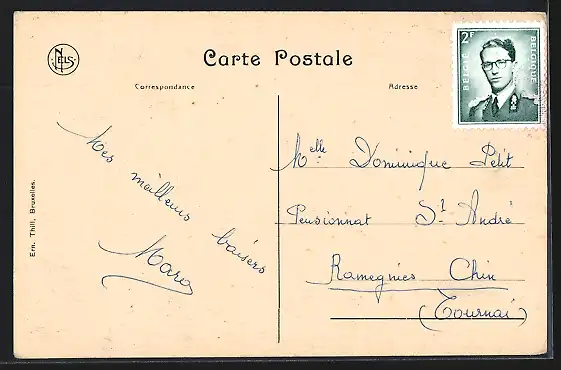 NELS
Carte Postale
Correspondance
Adresse
BELGIË 2F BELGIQUE
Mes meilleurs baisers
Mara
Melle Dominique Petit
Pensionnat St André
Ramegnies Chin
(Tournai)
Ern. Thill, Bruxelles.